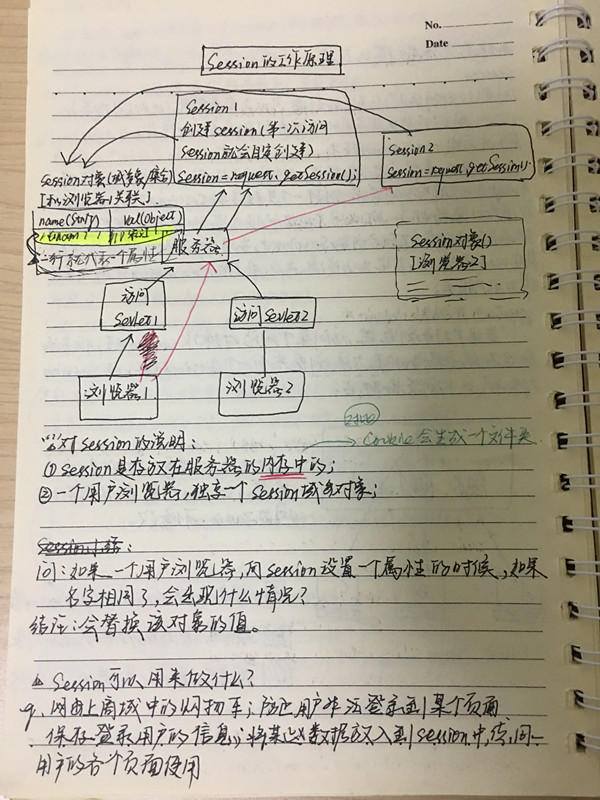 No.
Date
Session的工作原理
Session1
创建session(第一次访问
session就会自动创建)
session=request.getSession();
Session2
session=request.getSession();
session对象(域对象/集合)
[和浏览器1关联]
name(String) val(Object)
一行就代表一个属性
服务器
Session对象()
[浏览器2]
访问
Servlet1
访问Servlet2
浏览器1
浏览器2
对session的说明:
Cookie会生成一个文件夹
①session是存放在服务器的内存中的;
②一个用户浏览器,独享一个session域对象;
Session小结:
问:如果一个用户浏览器,向session设置一个属性的时候,如果
名字相同了,会出现什么情况?
结论:会替换该对象的值。
Session可以用来做什么?
网上商城中的购物车;防止用户非法登录到某个页面
保存登录用户的信息;将某些数据放入到session中,供同一
用户的各个页面使用